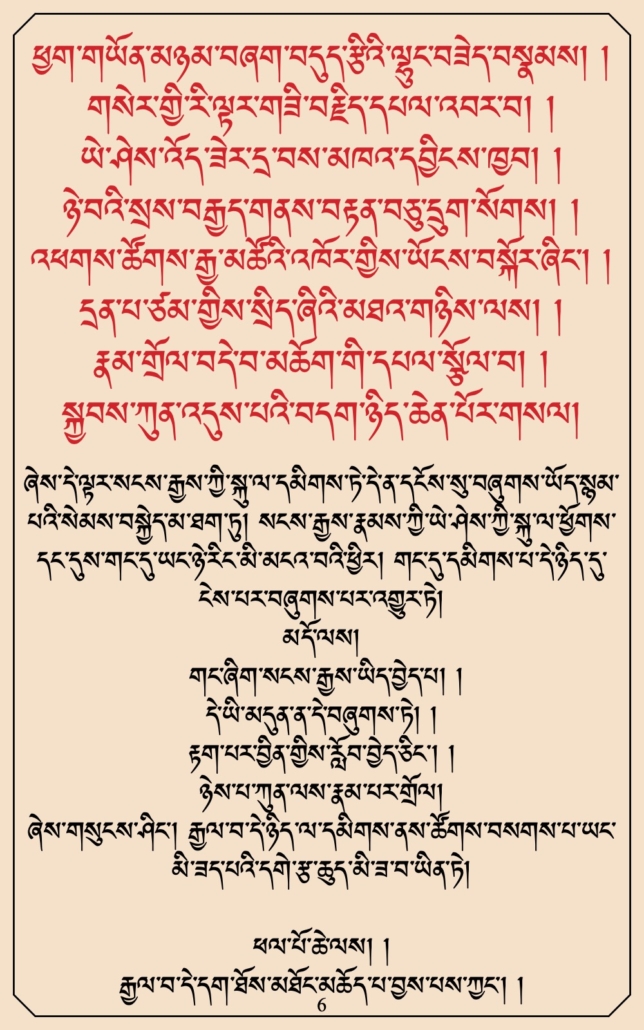 ཕྱག་གཡོན་མཉམ་བཞག་བདུད་རྩིའི་ལྷུང་བཟེད་བསྣམས། །
གསེར་གྱི་རི་ལྟར་གཟི་བརྗིད་དཔལ་འབར་བ། །
ཡེ་ཤེས་འོད་ཟེར་དྲ་བས་མཁའ་དབྱིངས་ཁྱབ། །
ཉེ་བའི་སྲས་བརྒྱད་གནས་བརྟན་བཅུ་དྲུག་སོགས། །
འཕགས་ཚོགས་རྒྱ་མཚོའི་འཁོར་གྱིས་ཡོངས་བསྐོར་ཞིང་། །
དྲན་པ་ཙམ་གྱིས་སྲིད་ཞིའི་མཐའ་གཉིས་ལས། །
རྣམ་གྲོལ་བདེ་བ་མཆོག་གི་དཔལ་སྩོལ་བ། །
སྐྱབས་ཀུན་འདུས་པའི་བདག་ཉིད་ཆེན་པོར་གསལ།
ཞེས་དེ་ལྟར་སངས་རྒྱས་ཀྱི་སྐུ་ལ་དམིགས་ཏེ་དེ་ན་དངོས་སུ་བཞུགས་ཡོད་སྙམ་
པའི་སེམས་བསྐྱེད་མ་ཐག་ཏུ། སངས་རྒྱས་རྣམས་ཀྱི་ཡེ་ཤེས་ཀྱི་སྐུ་ལ་ཕྱོགས་
དང་དུས་གང་དུ་ཡང་ཉེ་རིང་མི་མངའ་བའི་ཕྱིར། གང་དུ་དམིགས་པ་དེ་ཉིད་དུ་
ངེས་པར་བཞུགས་པར་འགྱུར་ཏེ།
མདོ་ལས།
གང་ཞིག་སངས་རྒྱས་ཡིད་བྱེད་པ། །
དེ་ཡི་མདུན་ན་དེ་བཞུགས་ཏེ། །
རྟག་པར་བྱིན་གྱིས་རློབ་བྱེད་ཅིང་། །
ཉེས་པ་ཀུན་ལས་རྣམ་པར་གྲོལ།
ཞེས་གསུངས་ཤིང་། རྒྱལ་བ་དེ་ཉིད་ལ་དམིགས་ནས་ཚོགས་བསགས་པ་ཡང་
མི་ཟད་པའི་དགེ་རྩ་ཆུད་མི་ཟ་བ་ཡིན་ཏེ།
ཕལ་པོ་ཆེ་ལས། །
རྒྱལ་བ་དེ་དག་ཐོས་མཐོང་མཆོད་པ་བྱས་པས་ཀྱང་། །
6